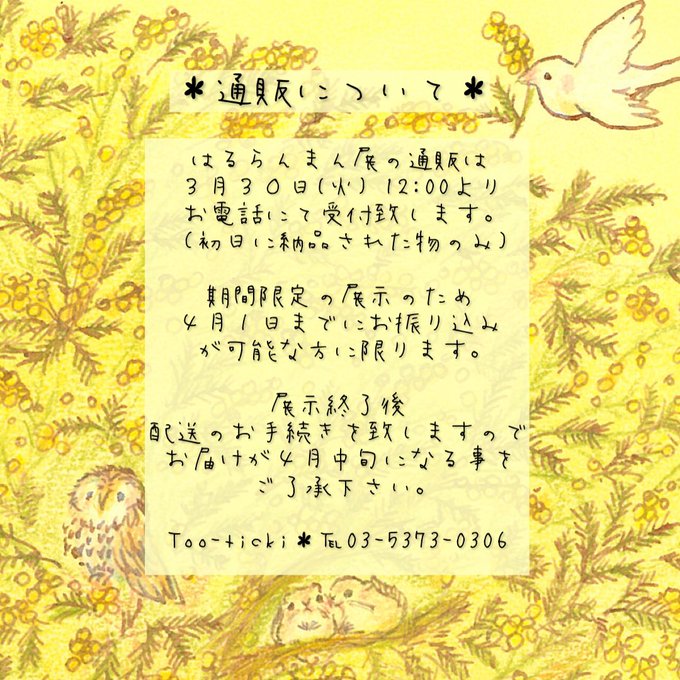 *通販について*
はるらんまん展の通販は
3月30日(火) 12:00より
お電話にて受付致します。
(初日に納品された物のみ)
期間限定の展示のため
4月1日までにお振り込み
が可能な方に限ります。
展示終了後
配送のお手続きを致しますので
お届けが4月中旬になる事を
ご了承下さい。
Too-ticki*℡03-5373-0306